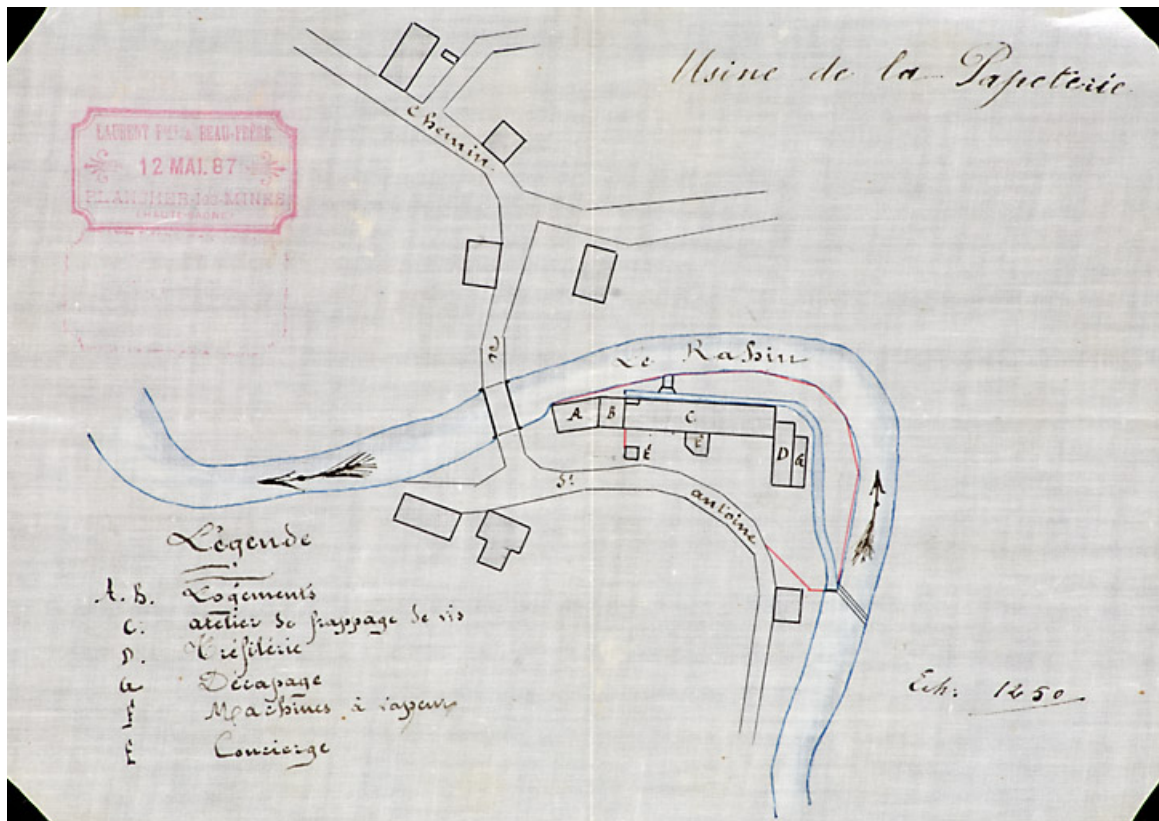 Usine de la Papeterie
LAURENT FILS & BEAU-FRÈRE
12 MAI. 87
PLANCHER-LES-MINES
(HAUTE-SAÔNE)
Chemin
de
St
antoine
Le Rahin
A
B
C
D
G
É
Légende
A. B. Logements
C. atelier de frappage de vis
D. Tréfilerie
G Décapage
Machines à vapeur
É Concierge
Ech: 1250